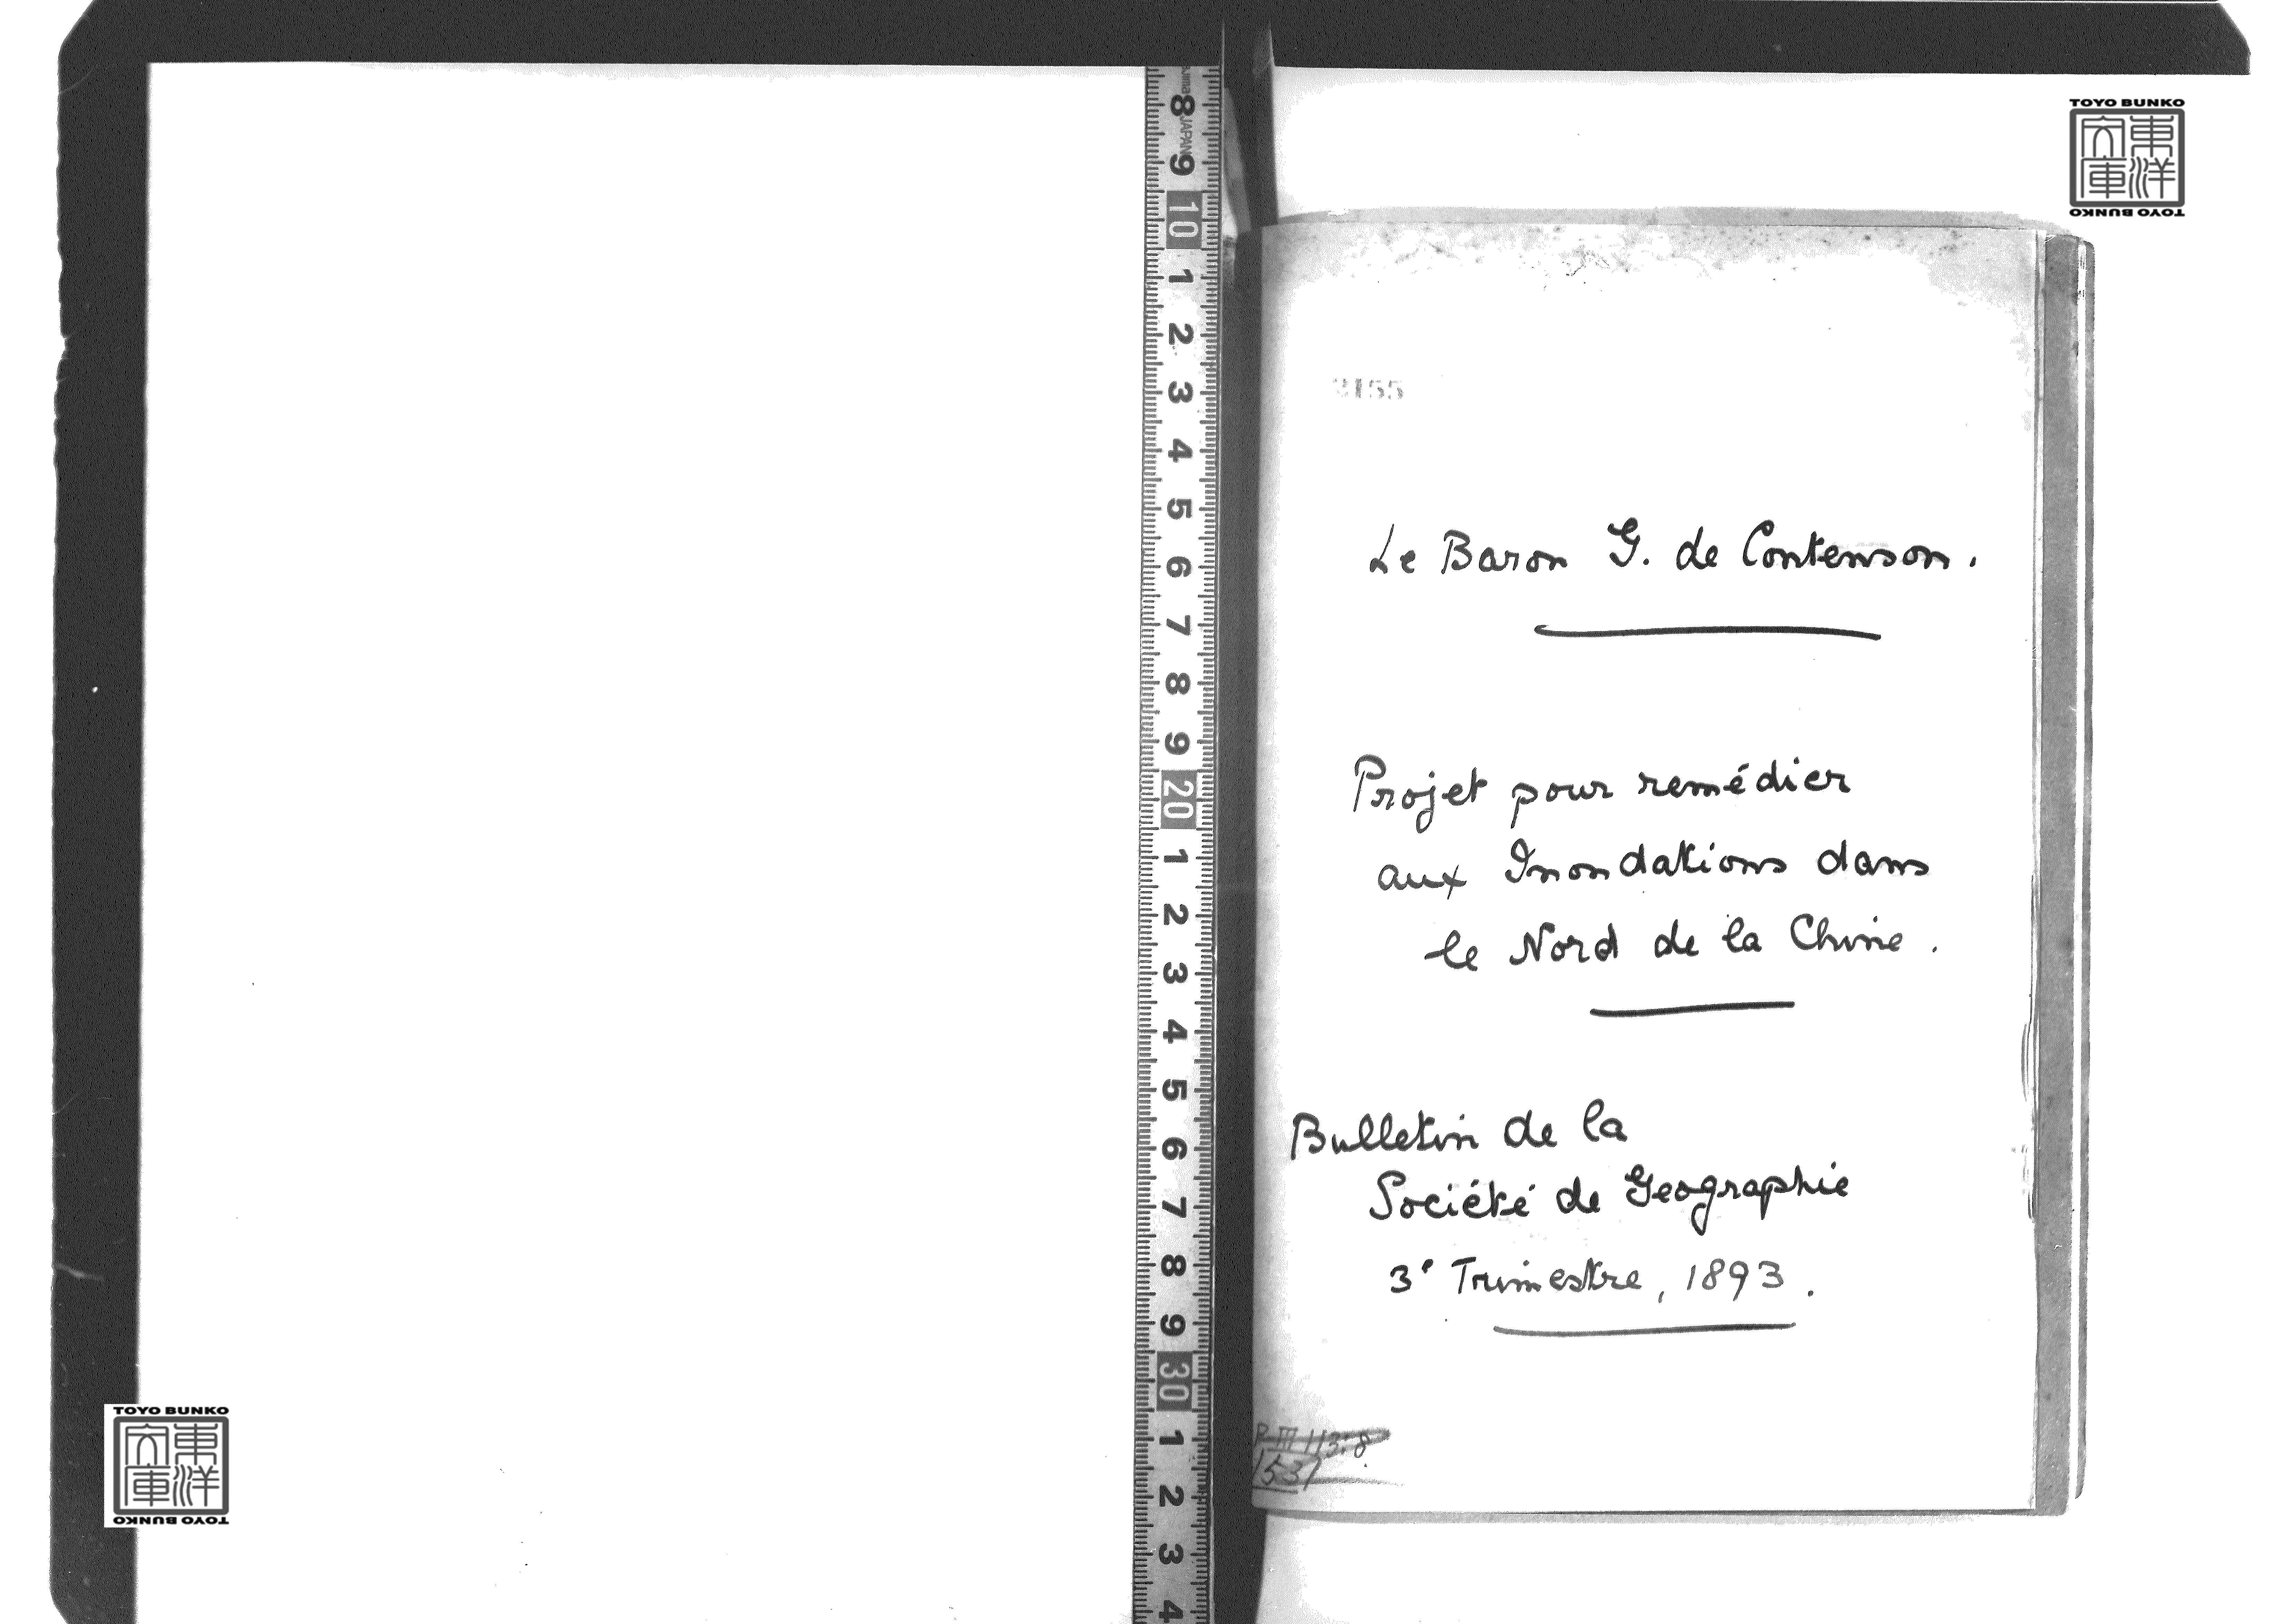 TOYO BUNKO
東洋
文庫
TOYO BUNKO
JAPAN
8
9
10
1
2
3
4
5
6
7
8
9
20
1
2
3
4
5
6
7
8
9
30
1
2
3
4
3155
Le Baron G. de Contenson.
Projet pour remédier
aux Inondations dans
le Nord de la Chine.
Bulletin de la
Société de Geographie
3e Trimestre, 1893.
TOYO BUNKO
東洋
文庫
TOYO BUNKO